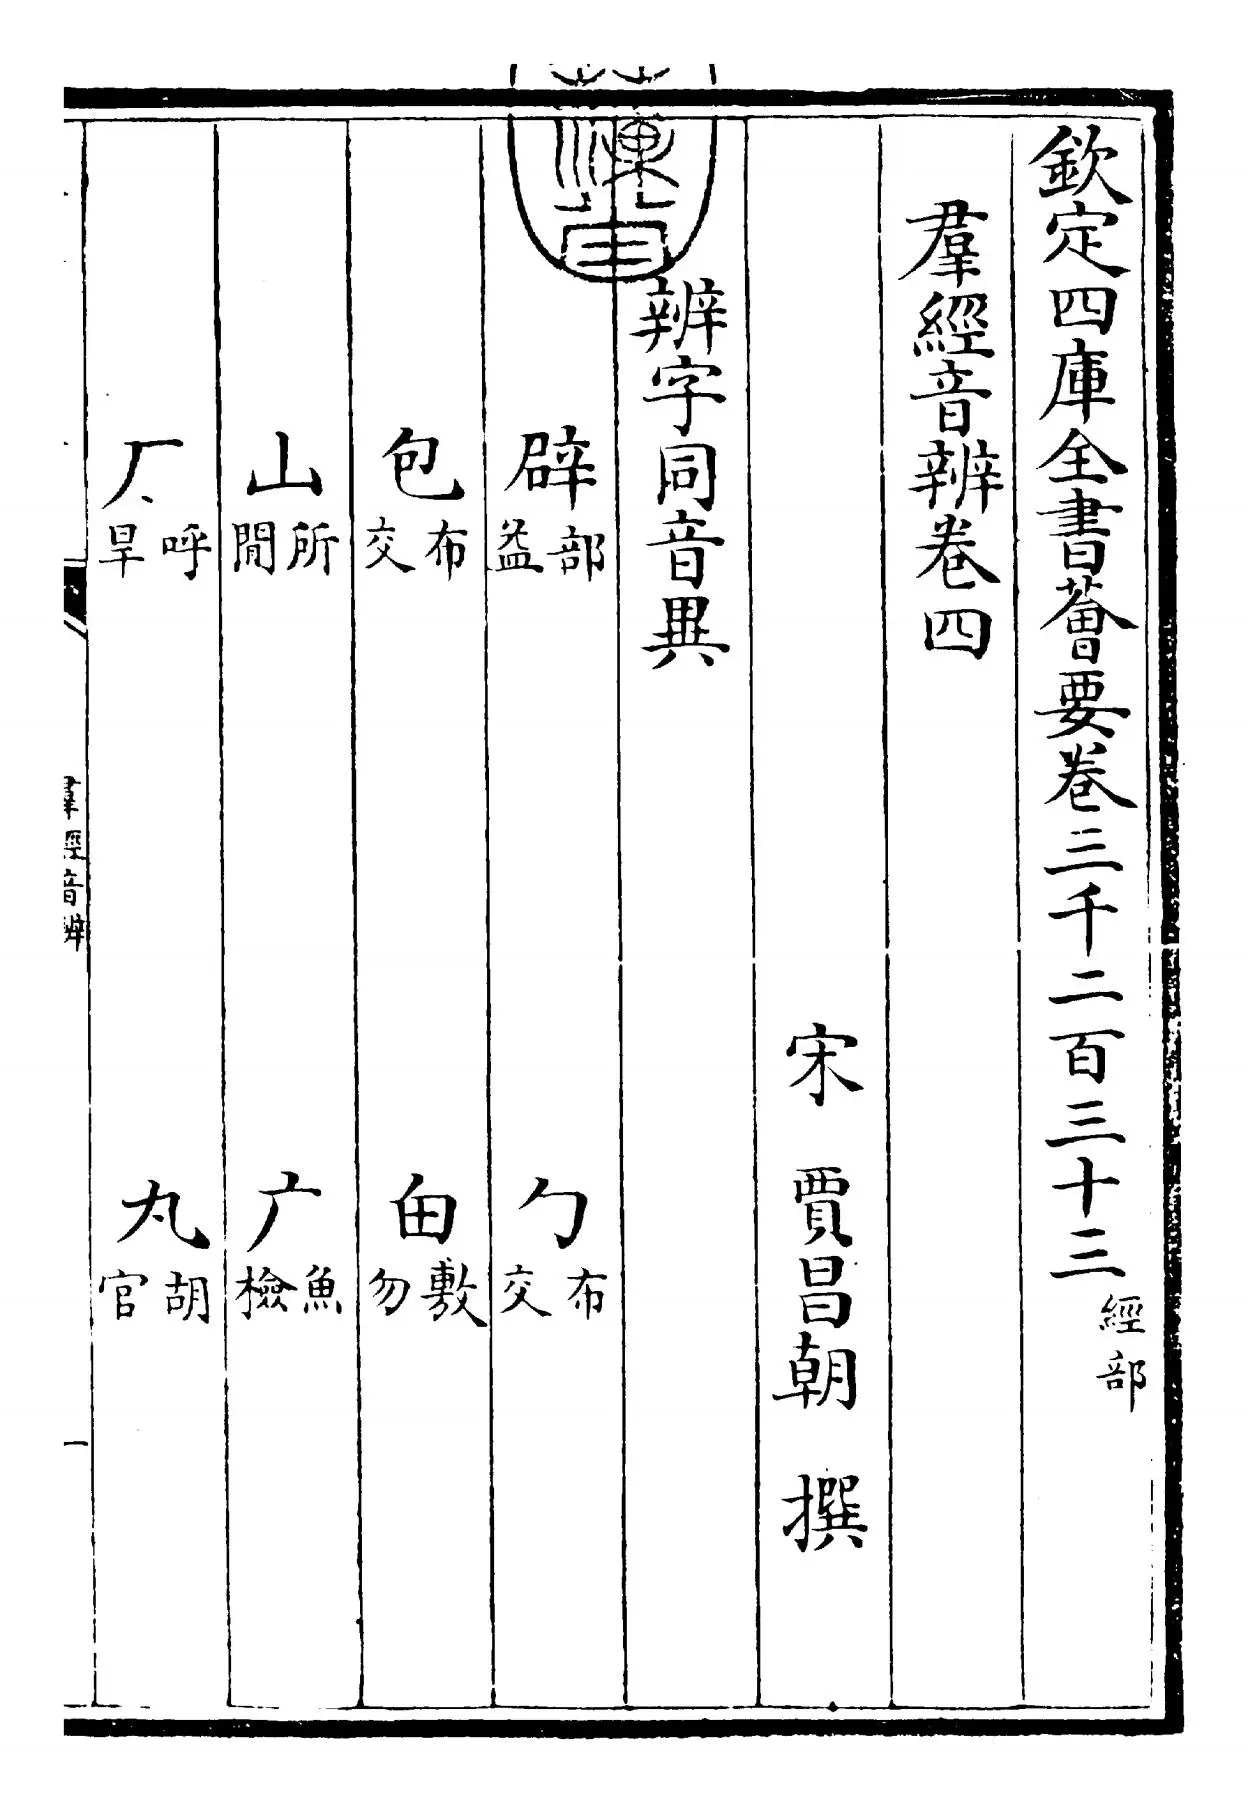 欽定四庫全書薈要卷三千二百三十三 經部
羣經音辨卷四
宋 賈昌朝 撰
辨字同音異
辟部益 勹布交
包布交 甶敷勿
山所閒 广魚檢
厂呼旱 丸胡官
羣經音辨
一